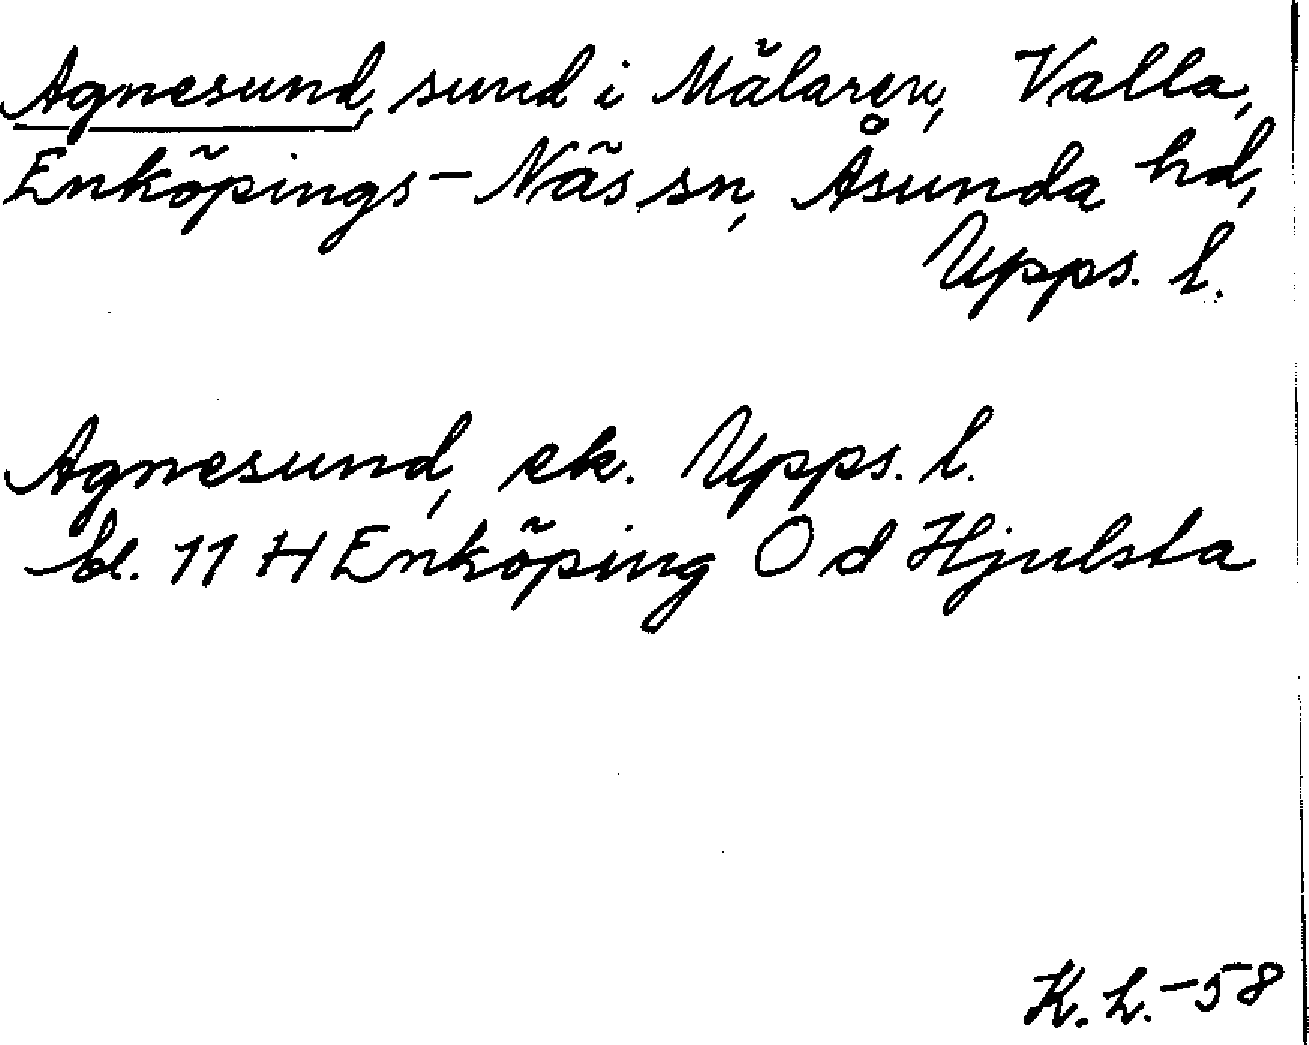 Agnesund, sund i Mälaren, Valla,
Enköpings-Näs sn, Åsunda hd,
Upps. l.
Agnesund, ek. Upps. l.
bl. 11 H Enköping O d Hjulsta
K. L. -58